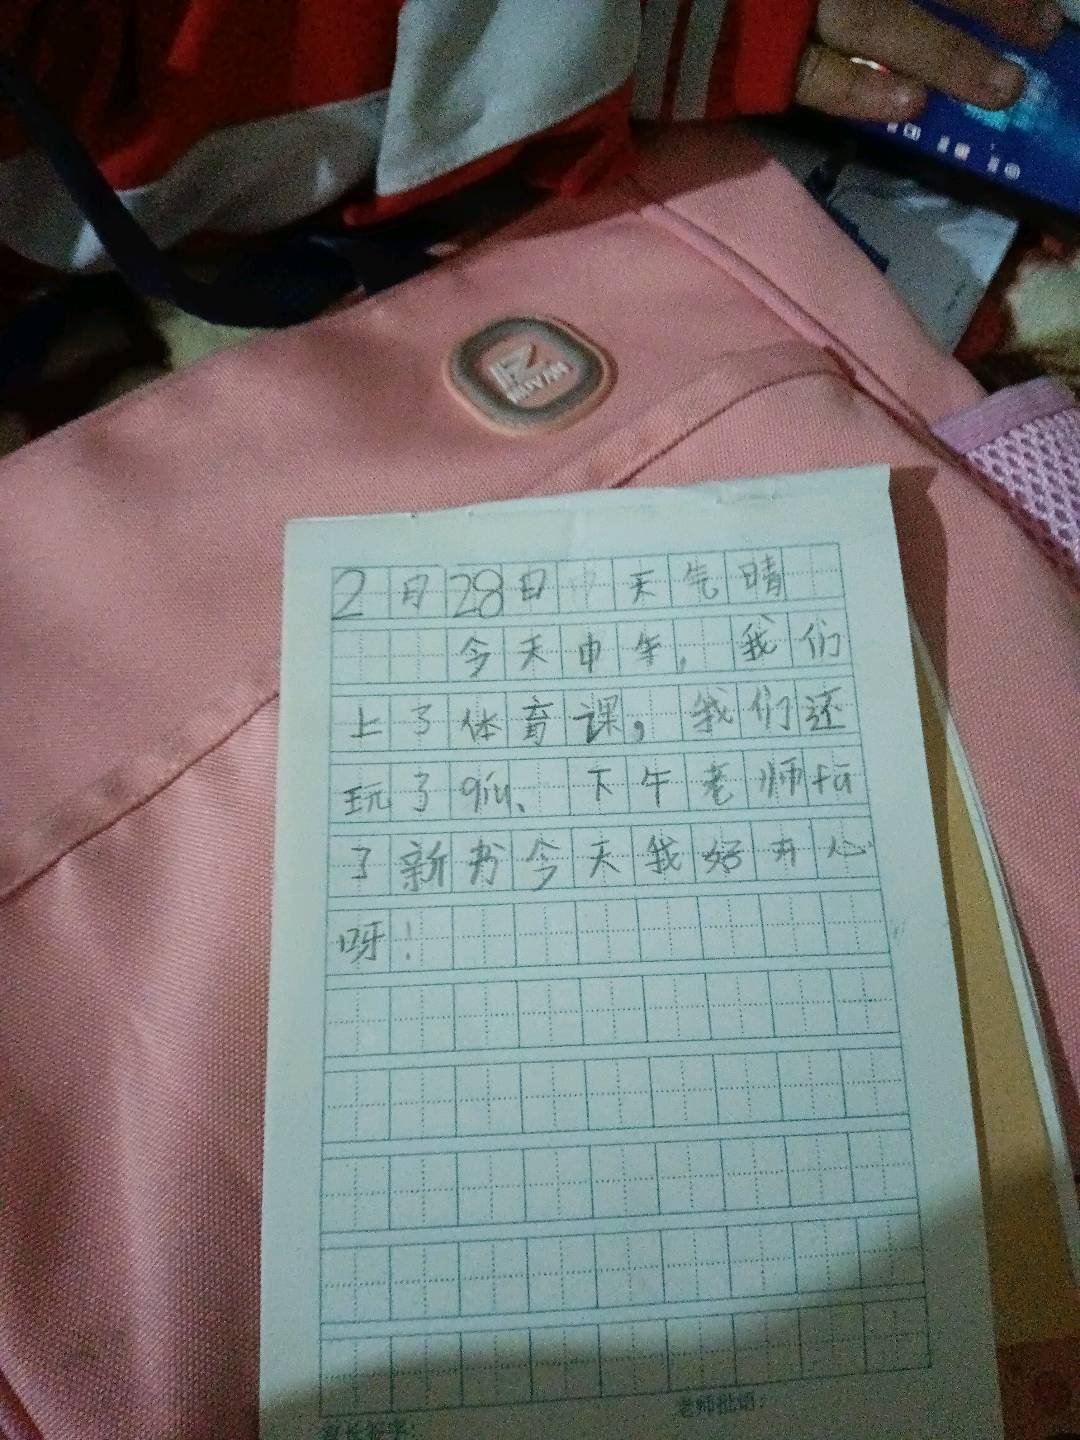 2月28日 天气晴
今天中午，我们
上了体育课，我们还
玩了qiu、下午老师fā
了新书今天我好开心
呀！
老师批语：
家长签字：